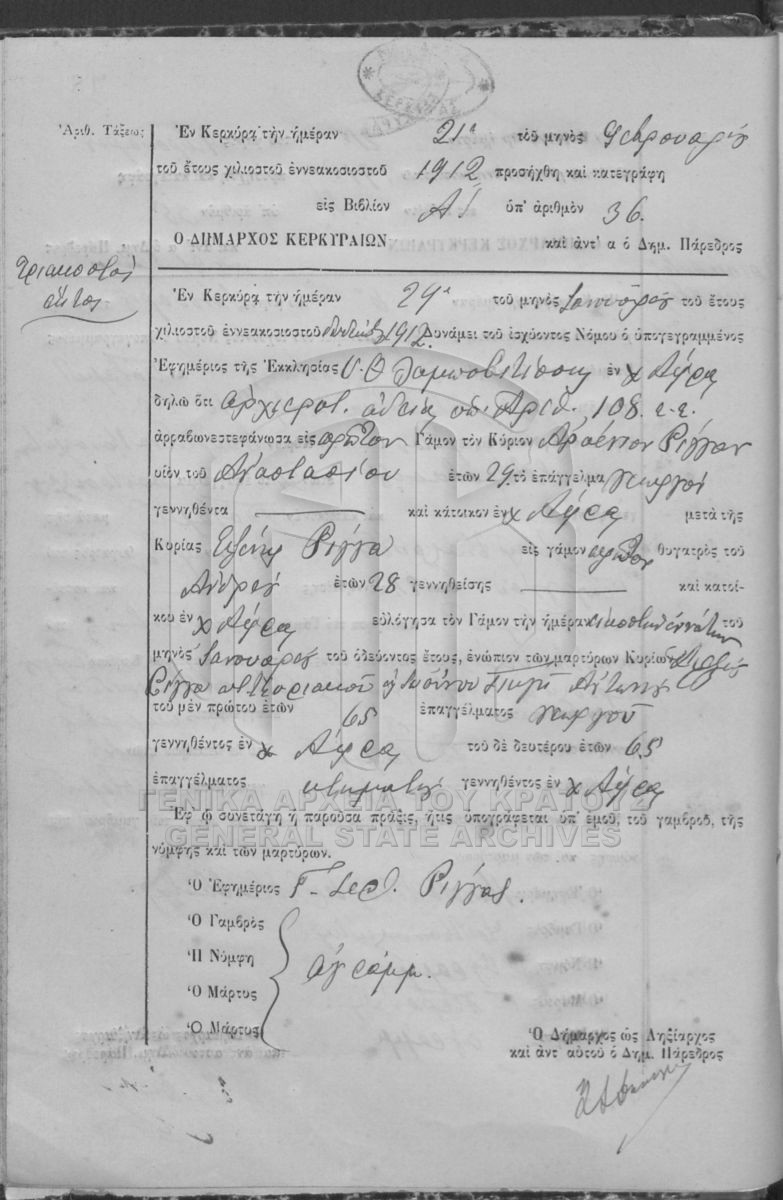 ΚΕΡΚΥΡΑΣ
Ἀριθ. Τάξεως
Ἐν Κερκύρᾳ τὴν ἡμέραν 21η τοῦ μηνὸς Φεβρουαρίου
τοῦ ἔτους χιλιοστοῦ ἐννεακοσιοστοῦ 1912 προσήχθη καὶ κατεγράφη
εἰς Βιβλίον Α! ὑπ' ἀριθμὸν 36.
Ο ΔΗΜΑΡΧΟΣ ΚΕΡΚΥΡΑΙΩΝ καὶ ἀντ' α ὁ Δημ. Πάρεδρος
Τριακοστὸς
ἕκτος
Ἐν Κερκύρᾳ τὴν ἡμέραν 29η τοῦ μηνὸς Ἰανουαρίου τοῦ ἔτους
χιλιοστοῦ ἐννεακοσιοστοῦ 1912. Δυνάμει τοῦ ἰσχύοντος Νόμου ὁ ὑπογεγραμμένος
Ἐφημέριος τῆς Ἐκκλησίας Υ. Θ. ἐν χ Αὔρα
δηλῶ ὅτι ἀρχιερατ. ἀδείᾳ ὑπ. Ἀριθ. 108. ε.ε.
ἀρραβωνεστεφάνωσα εἰς πρῶτον Γάμον τὸν Κύριον Ἀρσένιον Ρίγγαν
υἱὸν τοῦ Ἀναστασίου ἐτῶν 29 τὸ ἐπάγγελμα γεωργοῦ
γεννηθέντα καὶ κάτοικον ἐν χ Αὔρα μετὰ τῆς
Κυρίας Ἑλένης Ρίγγα εἰς γάμον πρῶτον θυγατρὸς τοῦ
Ἀνδρέου ἐτῶν 28 γεννηθείσης καὶ κατοί-
κου ἐν χ Αὔρα εὐλόγησα τὸν Γάμον τὴν ἡμέραν εἰκοστὴν ἐννάτην τοῦ
μηνὸς Ἰανουαρίου τοῦ ὁδεύοντος ἔτους, ἐνώπιον τῶν μαρτύρων Κυρίων
Ρίγγα Ἀντώνη
τοῦ μὲν πρώτου ἐτῶν 65 ἐπαγγέλματος γεωργοῦ
γεννηθέντος ἐν χ Αὔρα τοῦ δὲ δευτέρου ἐτῶν 65
ἐπαγγέλματος κτηματίας γεννηθέντος ἐν χ Αὔρα
ΓΕΝΙΚΑ ΑΡΧΕΙΑ ΤΟΥ ΚΡΑΤΟΥΣ
Ἐφ' ᾧ συνετάγη ἡ παροῦσα πρᾶξις, ἥτις ὑπογράφεται ὑπ' ἐμοῦ, τοῦ γαμβροῦ, τῆς
GENERAL STATE ARCHIVES
νύμφης καὶ τῶν μαρτύρων.
Ὁ Ἐφημέριος Γ. Ἱερ. Ρίγγας.
Ὁ Γαμβρὸς
Ἡ Νύμφη
ἀγράμμ.
Ὁ Μάρτυς
Ὁ Μάρτυς
Ὁ Δήμαρχος ὡς Ληξίαρχος
καὶ ἀντ' αὐτοῦ ὁ Δημ. Πάρεδρος